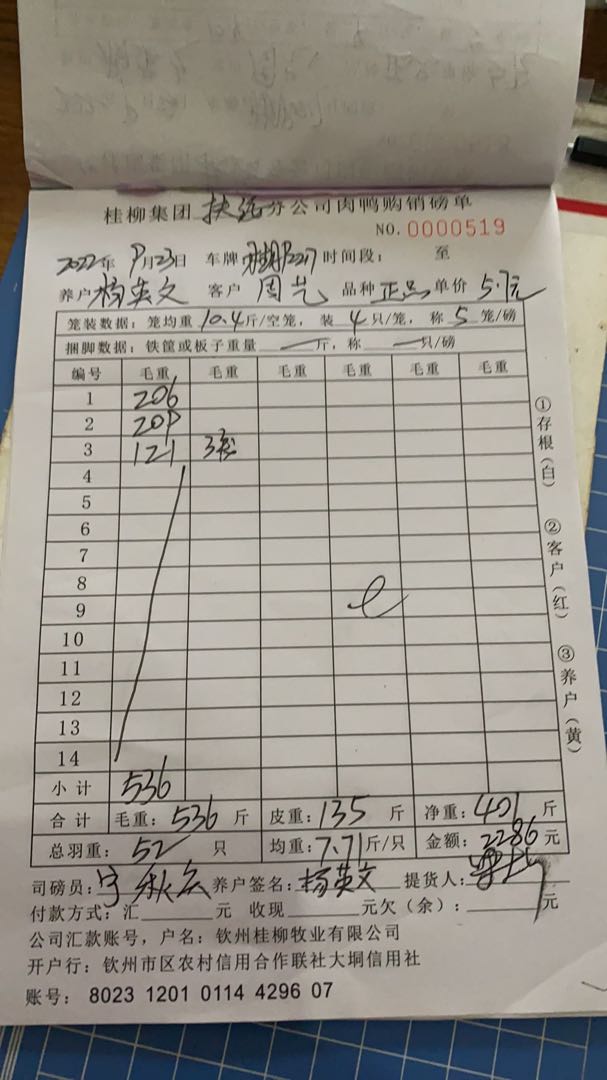 桂柳集团 扶绥 分公司肉鸭购销磅单
NO. 0000519
2022年 9月23日 车牌 时间段: 至
养户 杨英文 客户 周艺 品种 正品 单价 5.7元
笼装数据: 笼均重 10.4 斤/空笼, 装 4 只/笼, 称 5 笼/磅
捆脚数据: 铁筐或板子重量 — 斤, 称 — 只/磅
编号 毛重 毛重 毛重 毛重 毛重 毛重
1 206
2 209
3 121 3笼
4
5
6
7
8
9
10
11
12
13
14
小计 536
合计 毛重: 536 斤 皮重: 135 斤 净重: 401 斤
总羽重: 52 只 均重: 7.71 斤/只 金额: 2286 元
司磅员: 养户签名: 杨英文 提货人:
付款方式: 汇 元 收现 元欠(余): 元
公司汇款账号, 户名: 钦州桂柳牧业有限公司
开户行: 钦州市区农村信用合作联社大垌信用社
账号: 8023 1201 0114 4296 07
①存根(白)
②客户(红)
③养户(黄)